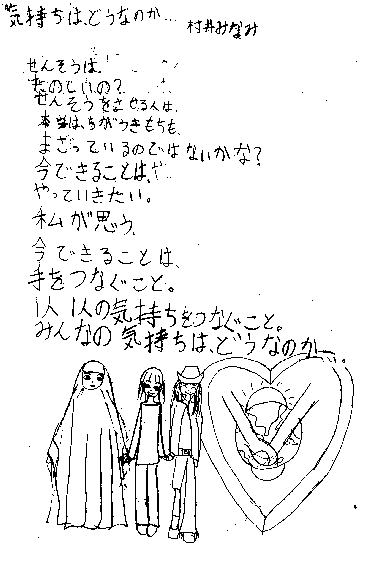 気持ちは、どうなのか…
村井みなみ
せんそうは、
たのしいの？
せんそうをさせる人は、
本当は、ちがうきもちも、
まざっているのではないかな？
今できることは、…
やっていきたい。
私が思う、
今できることは、
手をつなぐこと。
1人1人の気持ちをつなぐこと。
みんなの気持ちは、どうなのか…。